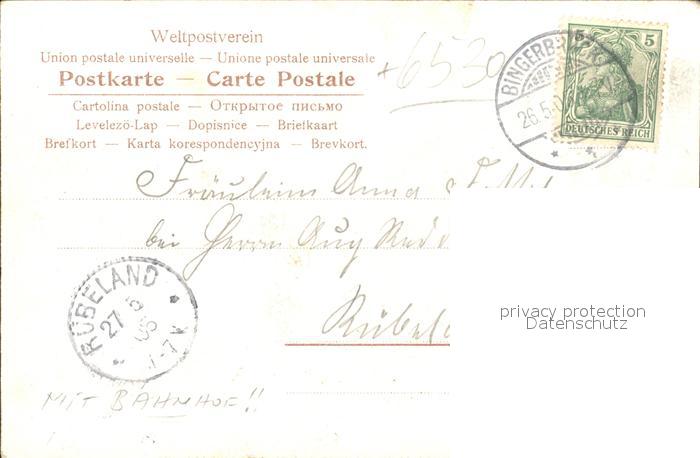 Weltpostverein
Union postale universelle — Unione postale universale
Postkarte — Carte Postale
Cartolina postale — Открытое письмо
Levelező-Lap — Dopisnice — Briefkaart
Brefkort — Karta korespondencyjna — Brevkort.
+6530
BINGERBRÜCK
26.5.0
5 5
DEUTSCHES REICH
Fräulein Anna
bei Herrn Aug
RÜBELAND
27 5 05
privacy protection
Datenschutz
MIT BAHNHOF!!